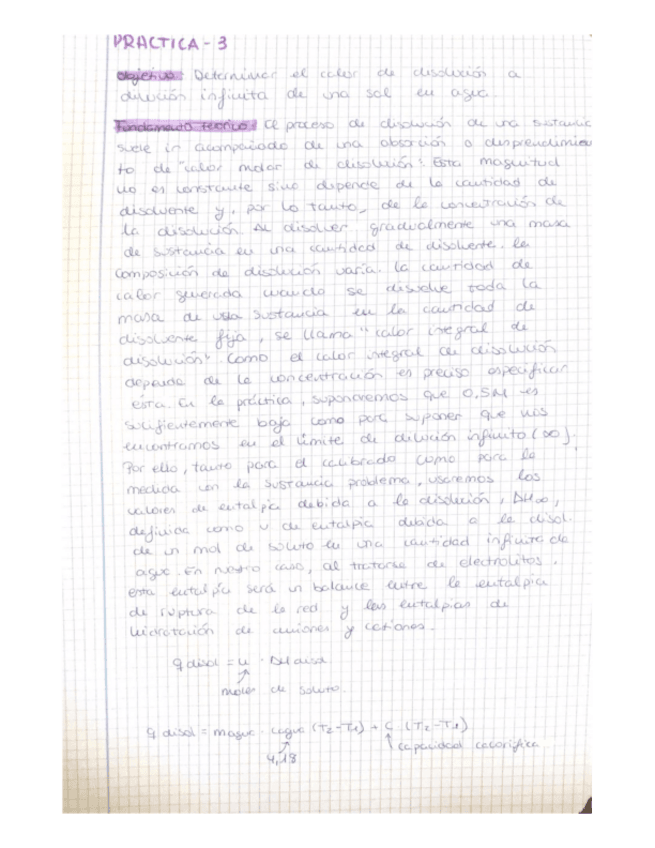 PRACTICA - 3
Objetivo: Determinar el calor de disolución a
dilución infinita de una sal en agua.
Fundamento teorico: El proceso de disolución de una sustancia
suele ir acompañado de una absorción o desprendimien
to de "calor molar de disolución". Esta magnitud
no es constante sino depende de la cantidad de
disolvente y, por lo tanto, de la concentración de
la disolución. Al disolver gradualmente una masa
de sustancia en una cantidad de disolvente. la
composición de disolución varía. la cantidad de
calor generada cuando se disuelve toda la
masa de una sustancia en la cantidad de
disolvente fija, se llama "calor integral de
disolución". Como el calor integral de disolución
depende de la concentración es preciso especificar
ésta. En la práctica, suponaremos que 0,5M es
suficientemente baja como para suponer que nos
encontramos en el límite de dilución infinito (∞).
Por ello, tanto para el calibrado como para la
medida con la sustancia problema, usaremos los
valores de entalpía debida a la disolución, ΔH∞,
definida como v de entalpia debida a la disol.
de un mol de soluto en una cantidad infinita de
agua. En nuestro caso, al tratarse de electrolitos.
esta entalpía será un balance entre la entalpía
de ruptura de la red y las entalpias de
hidratación de aniones y cationes.
q disol = n · ΔH
moles de soluto.
q disol = magua · cagua (T2-T1) + C (T2-T1)
4,18
capacidad calorífica